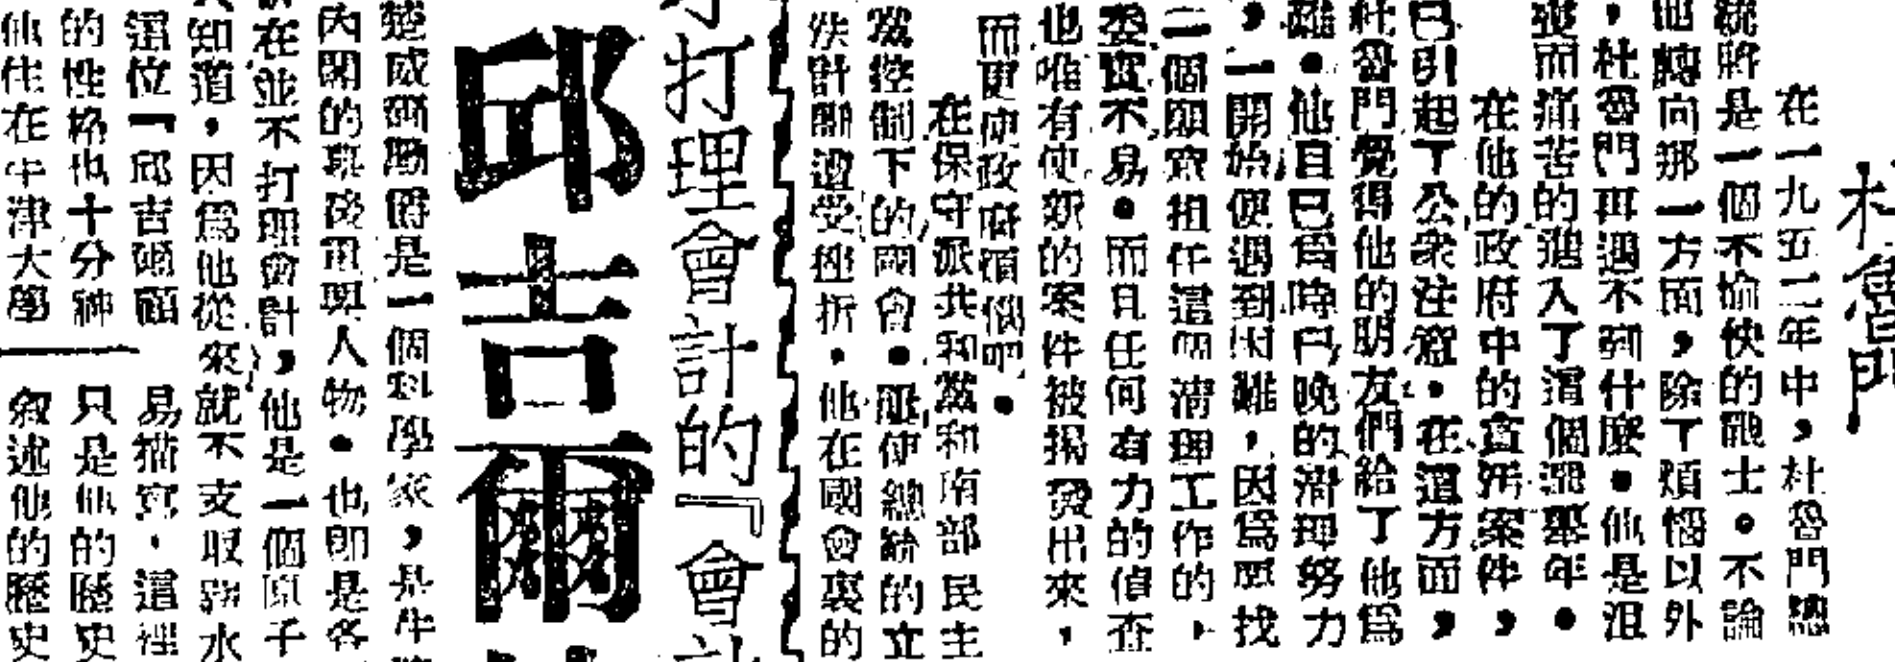 杜魯門
在一九五二年中，杜魯門總
統將是一個不愉快的戰士。不論
他轉向那一方面，除了煩惱以外
，杜魯門再遇不到什麼。他是沮
喪而痛苦的進入了這個選舉年。
在他的政府中的貪污案件，
已引起了公衆注意。在這方面，
杜魯門覺得他的朋友們給了他爲
難。他自己爲時已晚的清理努力
，一開始便遇到困難，因爲要找
一個願意担任這個清理工作的，
委實不易。而且任何有力的偵查
也唯有使新的案件被揭發出來，
而更使政府煩惱吧。
在保守派共和黨和南部民主
黨控制下的國會。脈使總統的立
法計劃遭受挫折。他在國會裏的
打理會計的『會計
邱吉爾
楚威爾勛爵是一個科學家，是牛
內閣的幕後重要人物。也卽是各
在並不打理會計，他是一個原子
知道，因爲他從來就不支取薪水
這位『邱吉爾顧
的性格也十分神
他住在牛津大學
易描寫。這裡
只是他的歷史
叙述他的歷史